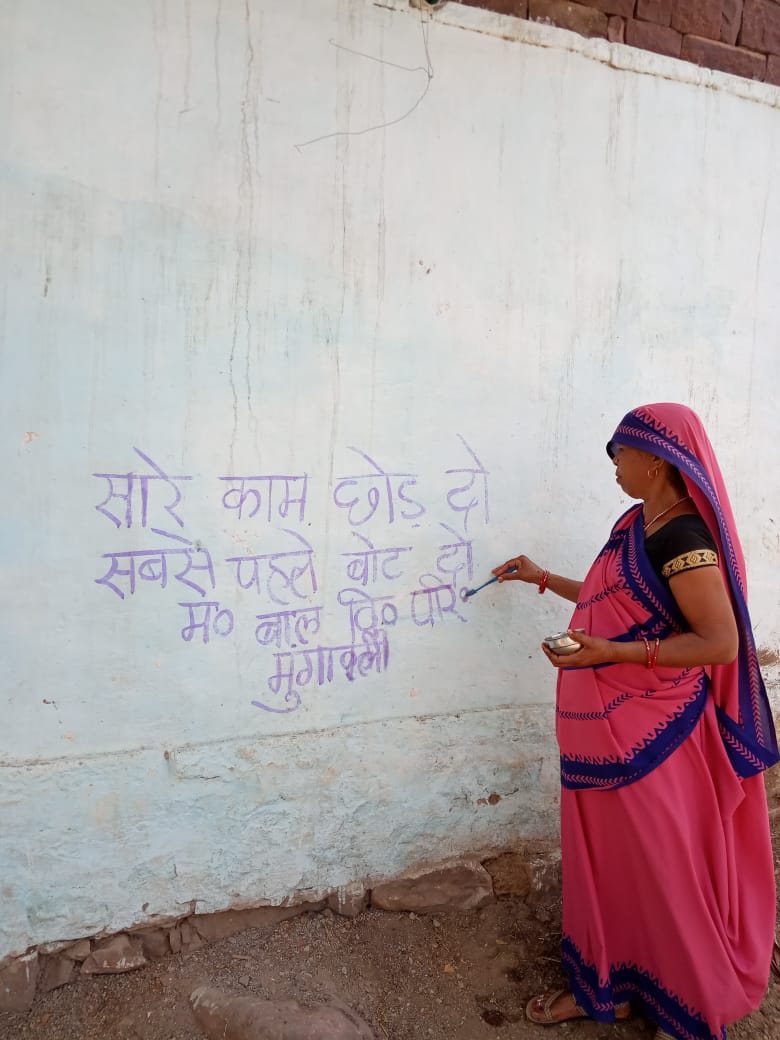 सारे काम छोड़ दो
सबसे पहले बोट दो
म० बाल वि० परि०
मुंगावली